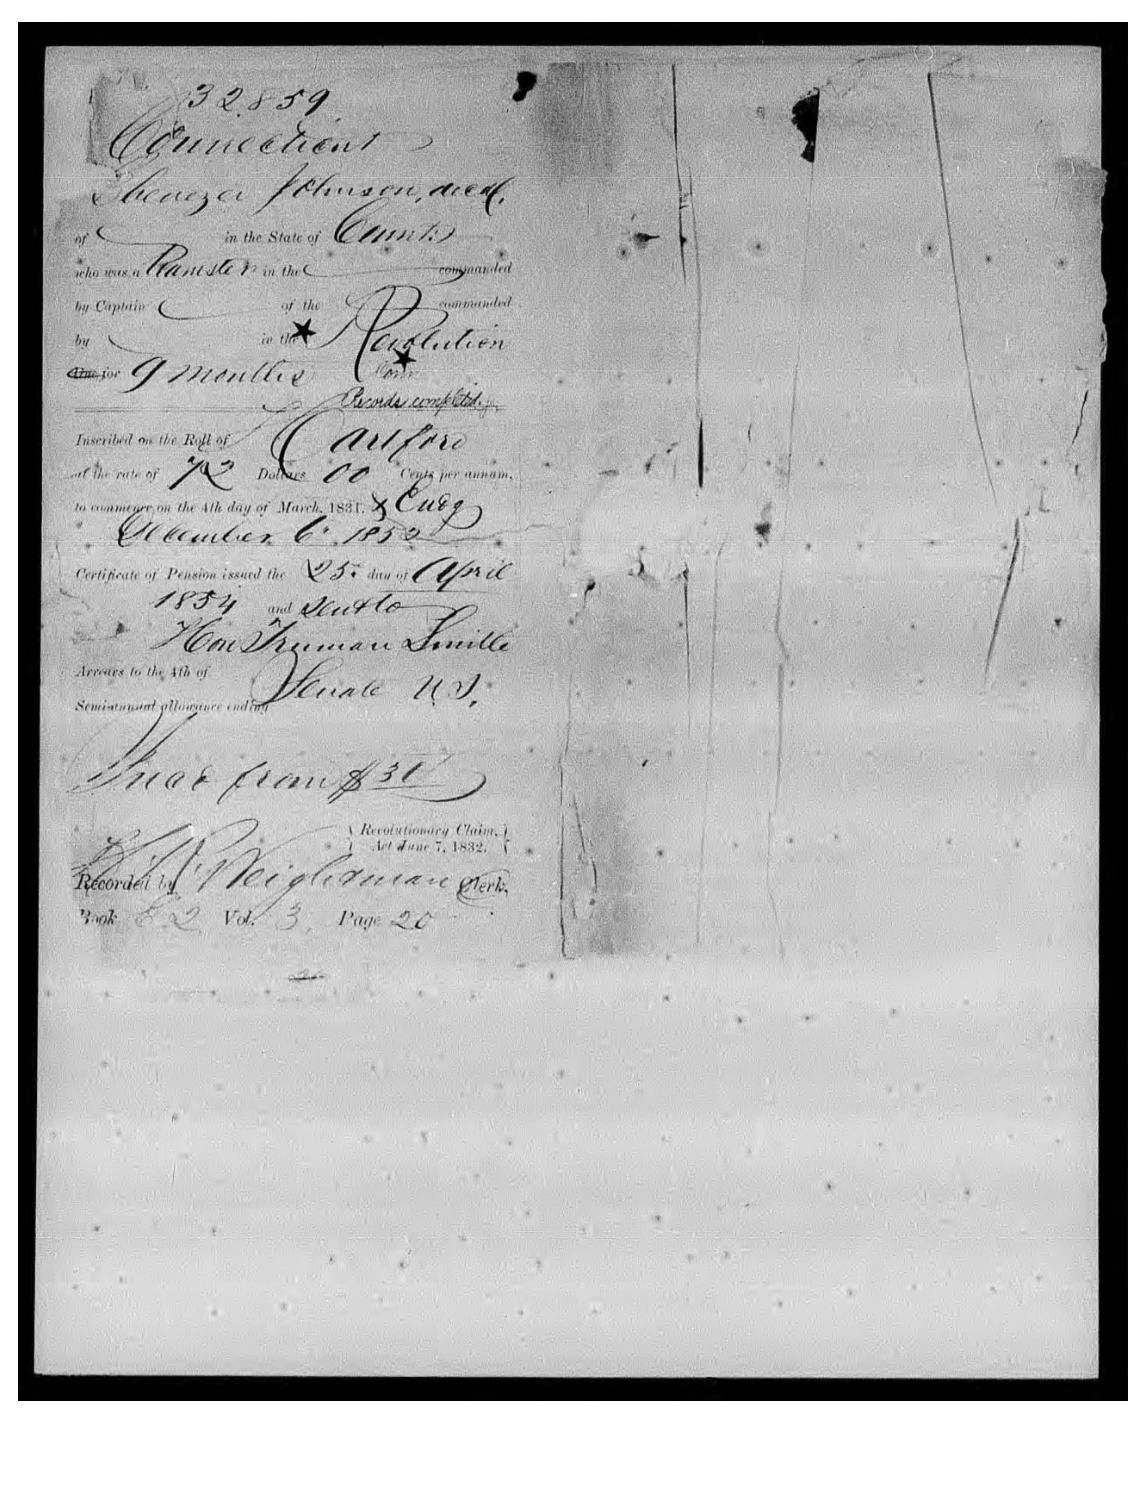 32859
Connecticut
Ebenezer Johnson, decd.
of in the State of Connt.
who was a Teamster in the commanded
by Captain of the commanded
by in the Revolution
for 9 months Conn
Records completed
Inscribed on the Roll of Hartford
at the rate of 72 Dollars 00 Cents per annum,
to commence on the 4th day of March, 1831. x Endg
December 6. 1852
Certificate of Pension issued the 25. day of April
1854 and sent to
Hon Truman Smith
Arrears to the 4th of
Senate U.S.
Semi-annual allowance ending
Incd from $30
Revolutionary Claim,
Act June 7, 1832.
Recorded by Weightman Clerk,
Book E. 2 Vol. 3. Page 20